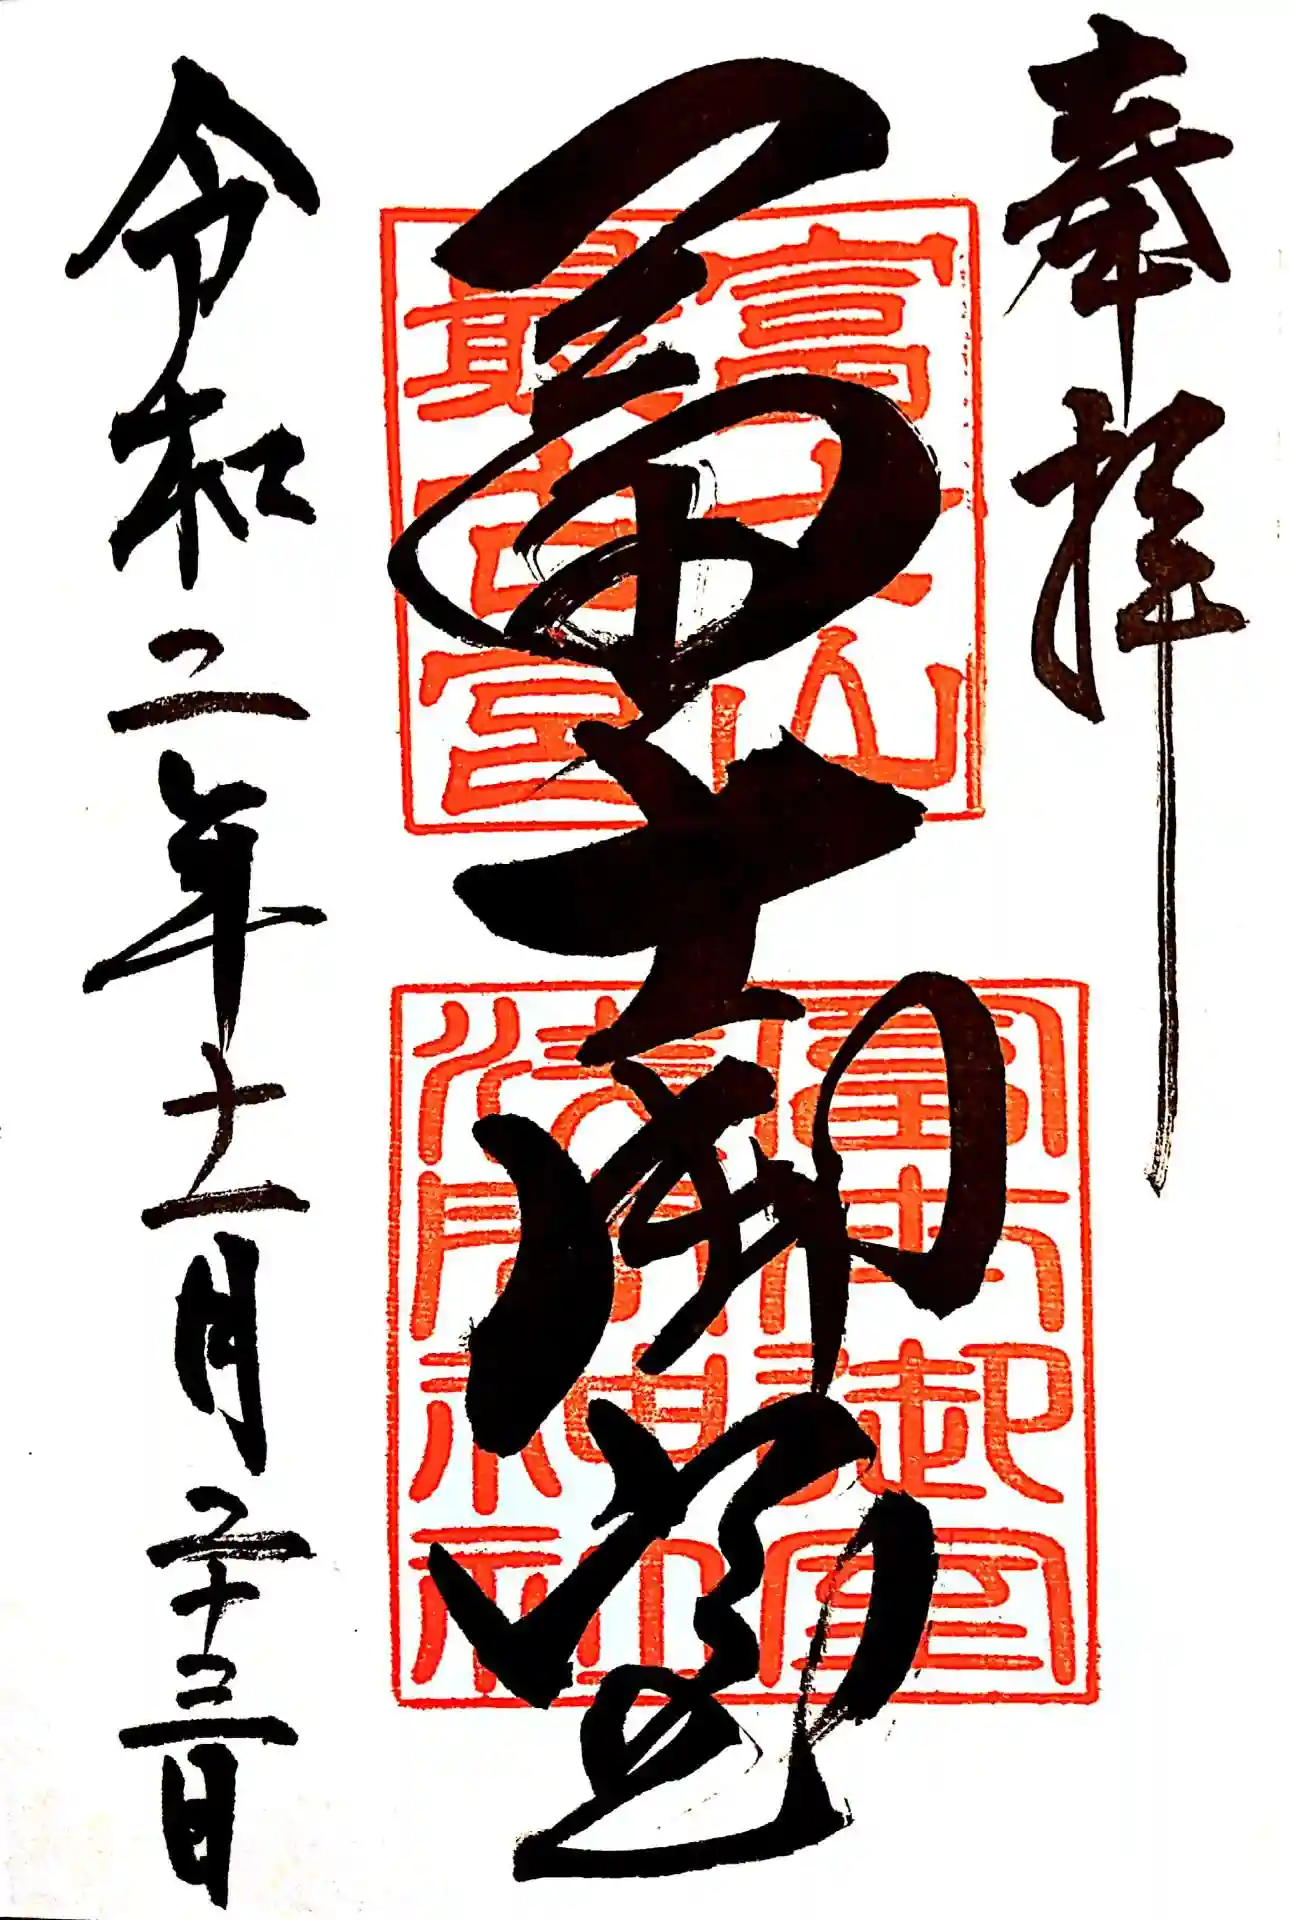 奉拝
富士山
最古宮
冨士御室
冨士御室
浅間神社
令和二年十一月二十三日